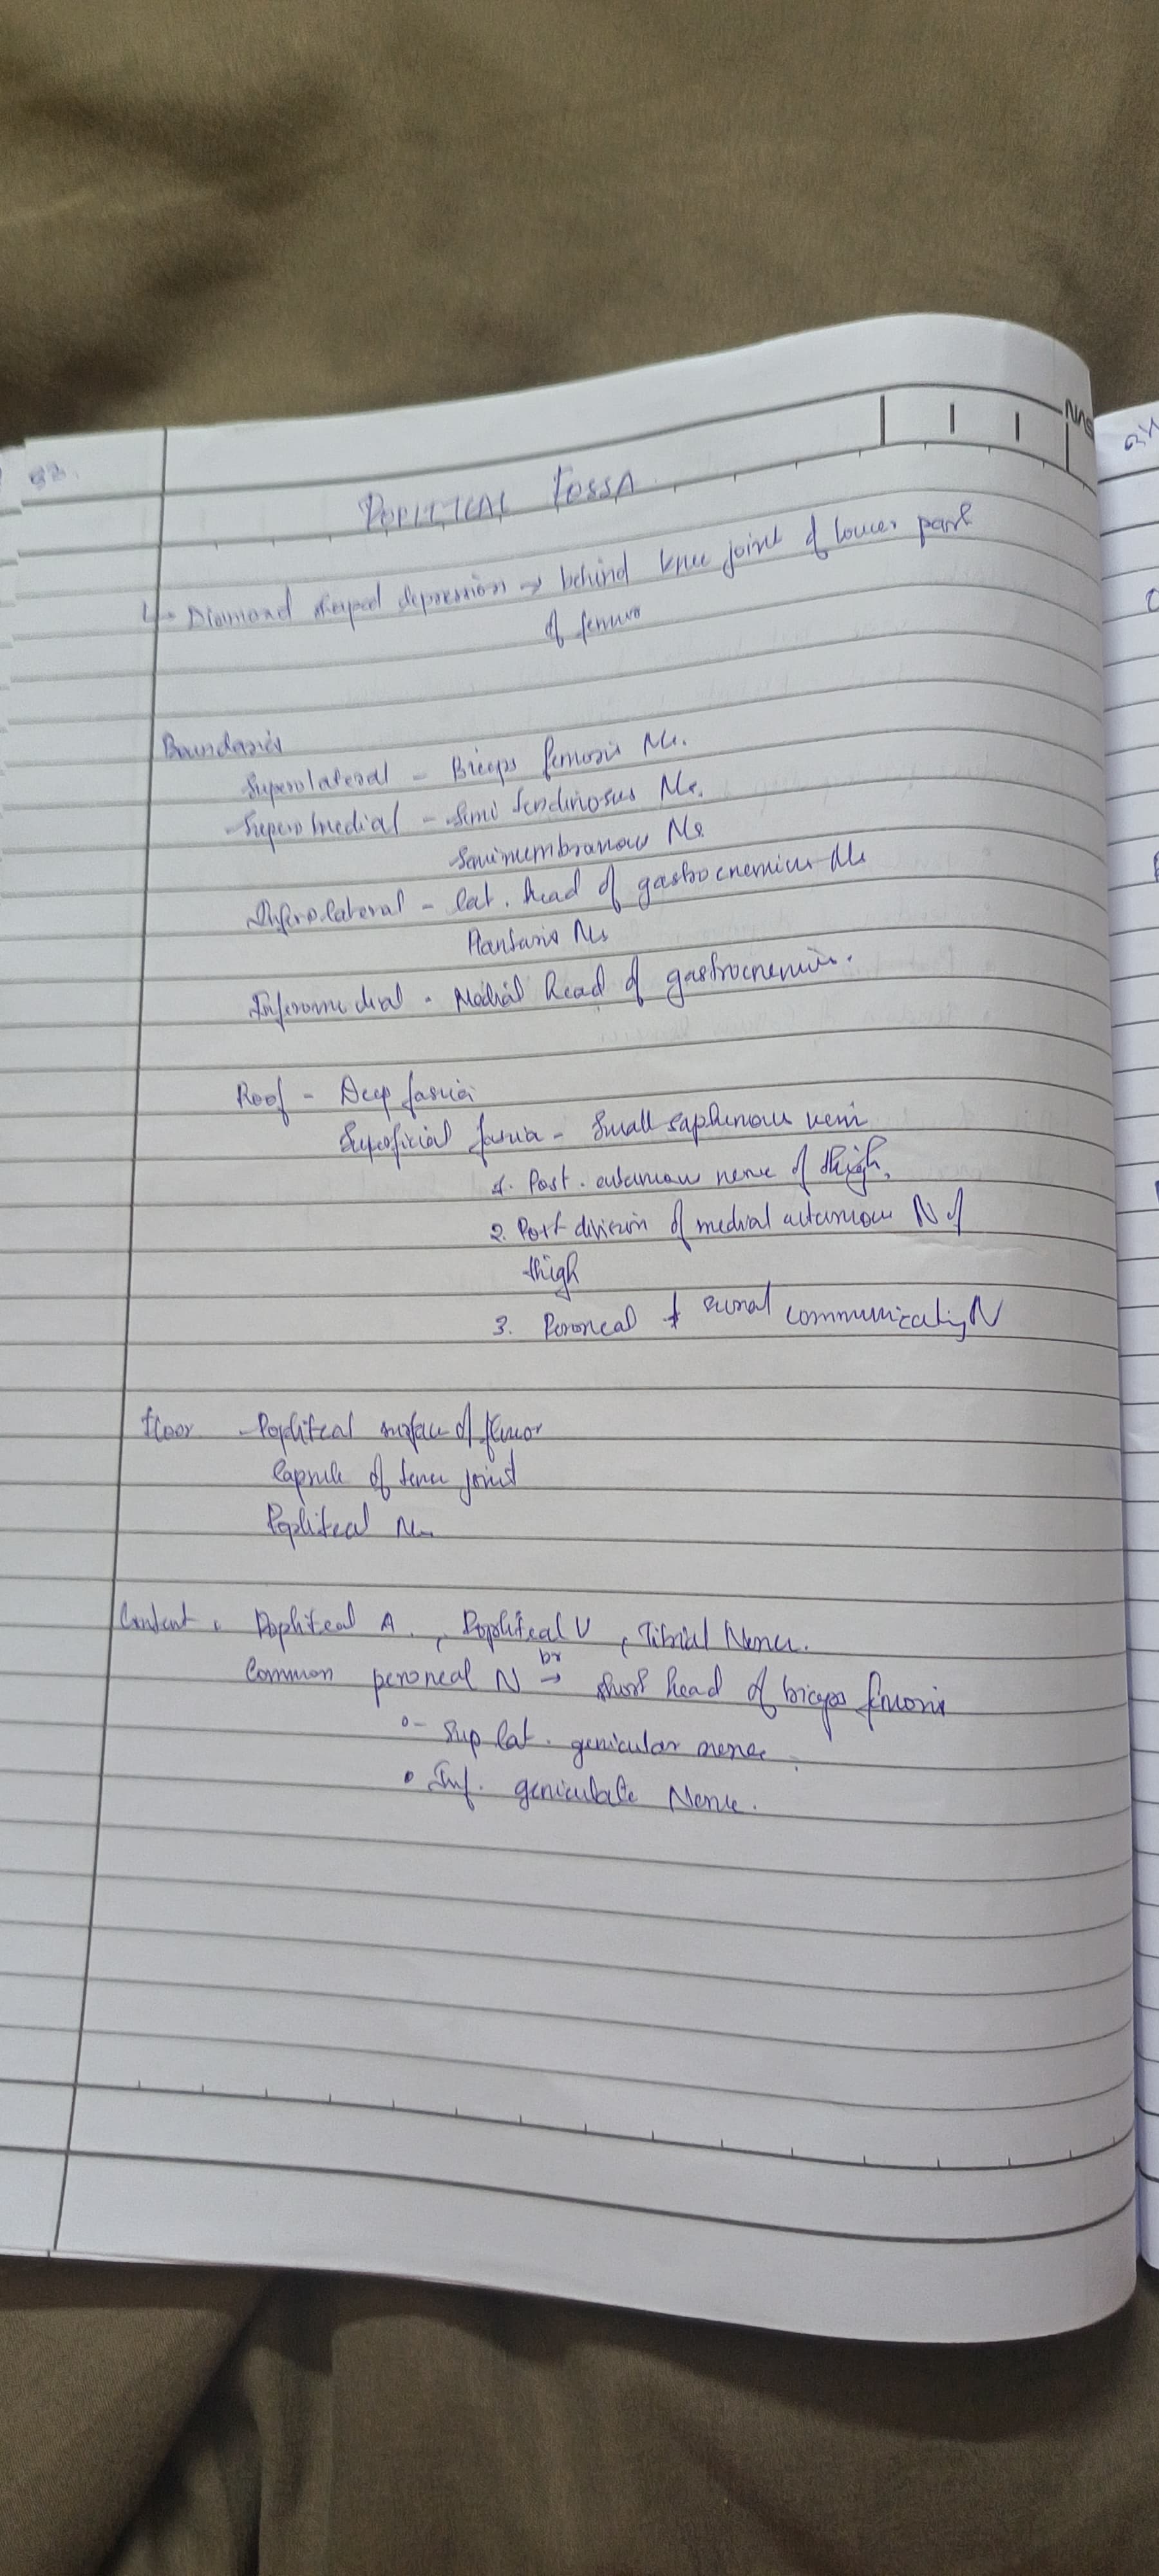 POPLITEAL FOSSA
↳ Diamond shaped depression → behind knee joint & lower part
of femur
Boundaries
Superolateral - Biceps femoris Ms.
Supero medial - Semi tendinosus Ms.
Semimembranous Ms
Inferolateral - lat. head of gastrocnemius Ms
Plantaris Ms
Inferomedial - Medial head of gastrocnemius.
Roof - Deep fascia
Superficial fascia - Small saphenous vein
1. Post. cutaneous nerve of thigh.
2. Post division of medial cutaneous N of
thigh
3. Peroneal & sural communicating N
floor - Popliteal surface of femur
Capsule of knee joint
Popliteal Ms
Content - Popliteal A., Popliteal V, Tibial Nerve.
br
Common peroneal N → short head of biceps femoris
- Sup lat. genicular nerve
• Inf. geniculate Nerve.